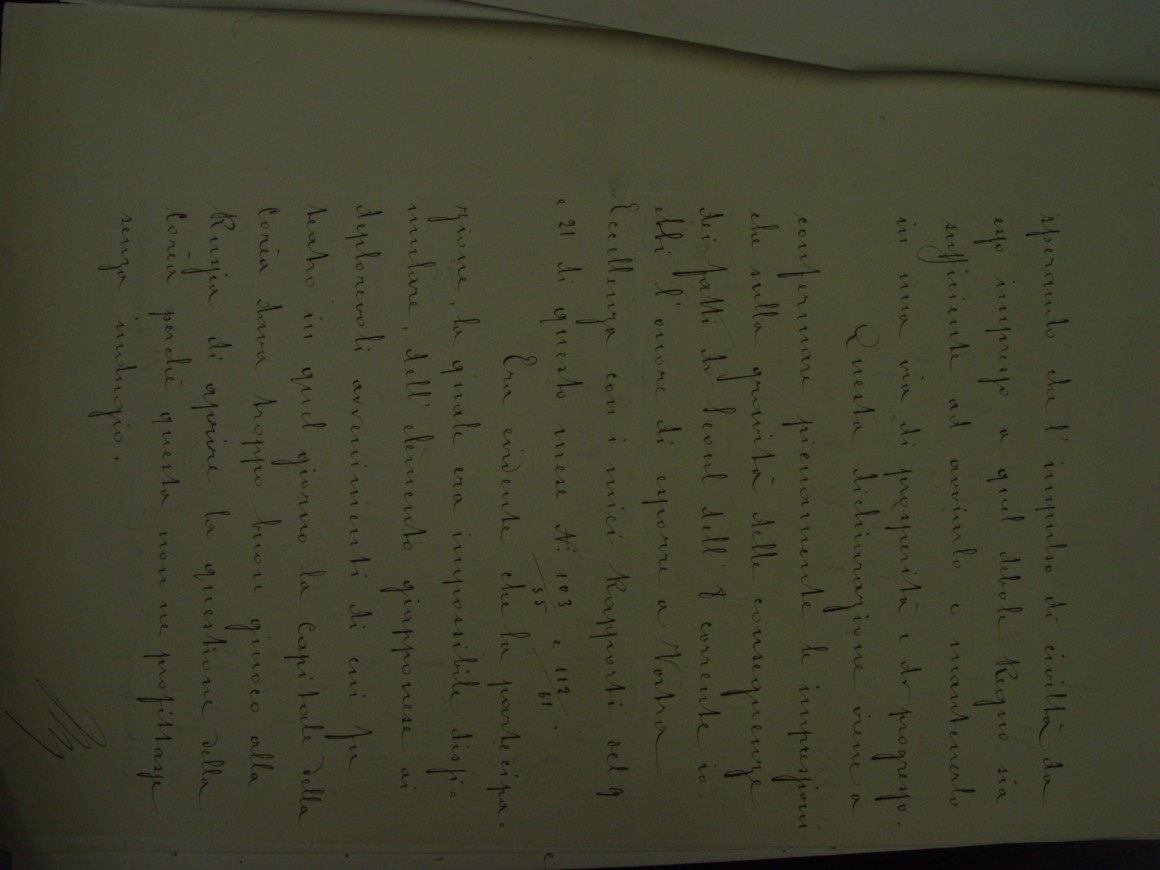 sperando che l'impulso di civiltà da
esso impresso a quel debole Regno sia
sufficiente ad avviarlo e mantenerlo
in una via di prosperità e di progresso.
Questa dichiarazione viene a
confermare pienamente le impressioni
che sulla gravità delle conseguenze
dei fatti di Seoul dell' 8 corrente io
ebbi l'onore di esporre a Vostra
Eccellenza con i miei Rapporti del 9
e 21 di questo mese N. 103/55 e 112/61.
Era evidente che la partecipa=
zione, la quale era impossibile dissi=
mulare, dell'elemento giapponese ai
deplorevoli avvenimenti di cui fu
teatro in quel giorno la Capitale della
Corèa dava troppo buon giuoco alla
Russia di aprire la questione della
Corèa perchè questa non ne profittasse
senza indugio.